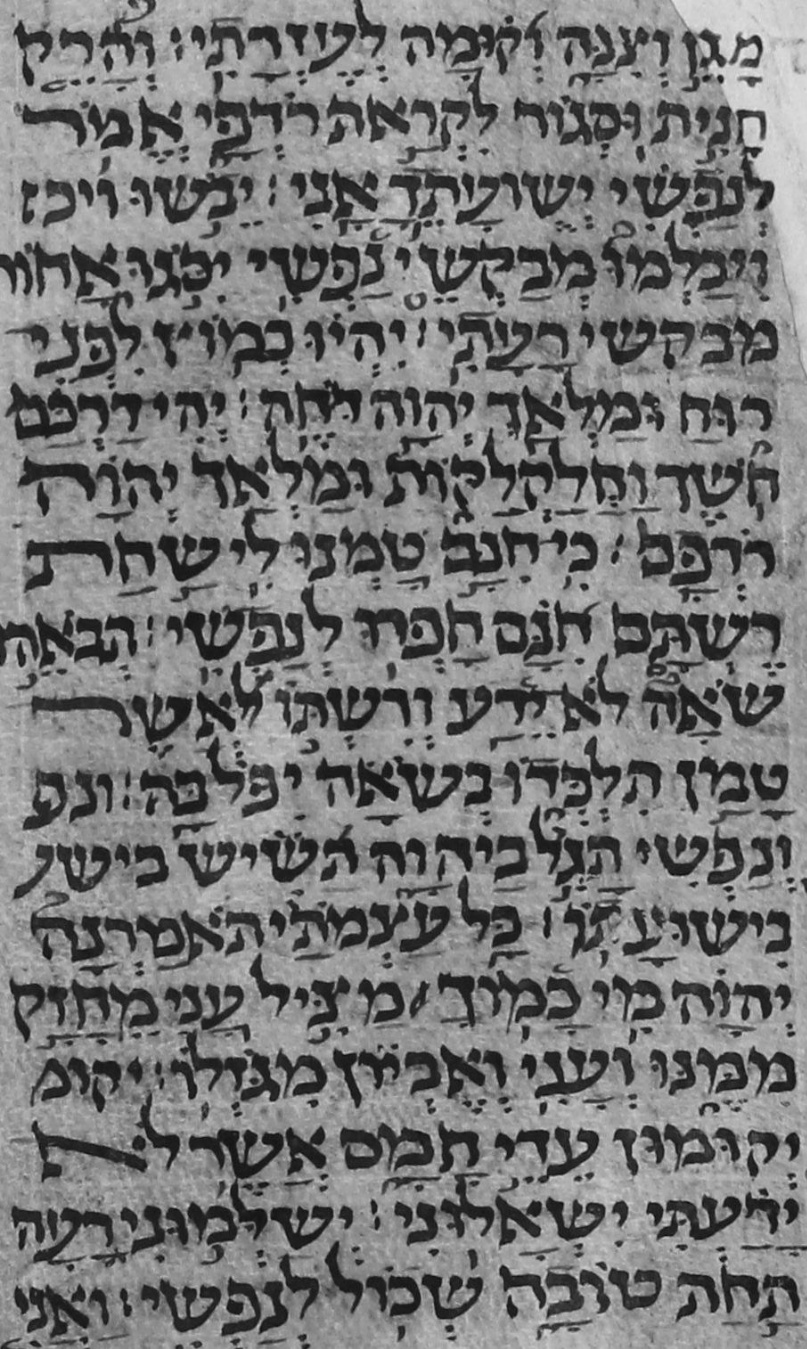 מגן וצנה וקומה לעזרתי׃ והרק
חנית וסגור לקראת רדפי אמור
לנפשי ישועתך אני׃ יבשו ויכ
ויכלמו מבקשי נפשי יסגו אחור
מבקשי רעתי׃ יהיו כמוץ לפני
רוח ומלאך יהוה דחה׃ יהי דרכם
חשך וחלקלקות ומלאך יהוה
רדפם׃ כי חנם טמנו לי שחת
רשתם חנם חפרו לנפשי׃ תבאה
שאה לא ידע ורשתו אשר
טמן תלכדו בשאה יפל בה׃ ונפ
ונפשי תגל ביהוה תשיש בישע
בישועתו׃ כל עצמתי תאמרנה
יהוה מי כמוך מציל עני מחזק
ממנו ועני ואביון מגזלו׃ יקומ
יקומון עדי חמס אשר לא
ידעתי ישאלוני׃ ישלמוני רעה
תחת טובה שכול לנפשי׃ ואני